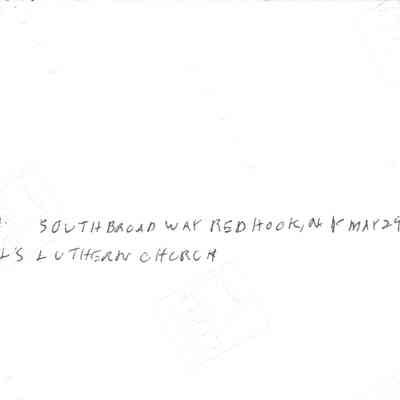 SOUTH BROAD WAY RED HOOK, N Y MAY 29
L'S LUTHERN CHURCH